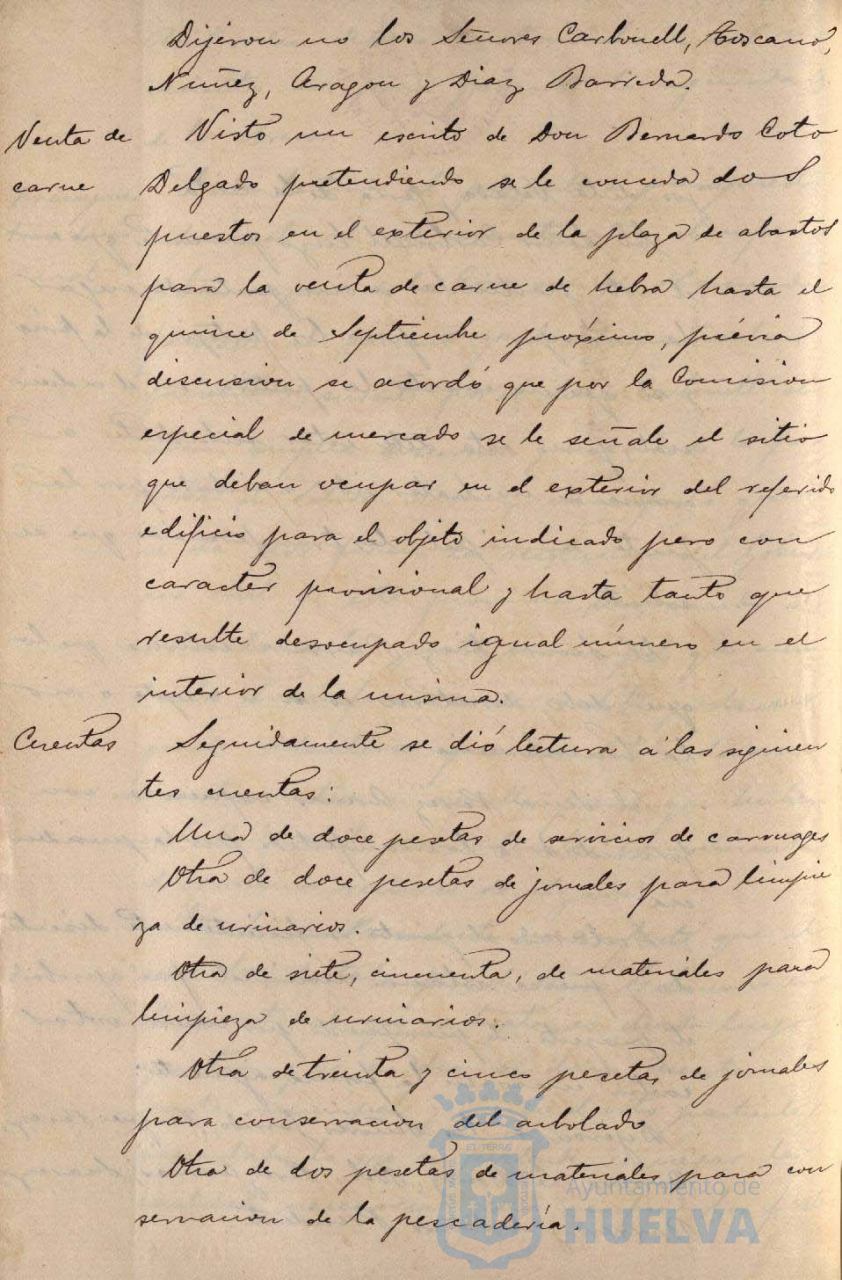 Dijéron no los Señores Carbonell, Toscano,
Nuñez, Aragon y Diaz Barreda.
Venta de carne
Visto un escrito de Don Bernardo Coto
Delgado pretendiendo se le conceda dos
puestos en el exterior de la plaza de abastos
para la venta de carne de hebra hasta el
quince de Septiembre próximo, prévia
discusion se acordó que por la Comision
especial de mercado se le señale el sitio
que deban ocupar en el exterior del referido
edificio para el objeto indicado pero con
caracter provisional y hasta tanto que
resulte desocupado igual número en el
interior de la misma.
Cuentas
Seguidamente se dió lectura á las siguien
tes cuentas:
Una de doce pesetas de servicios de carruages
Otra de doce pesetas de jornales para limpie
za de urinarios.
Otra de siete, cincuenta, de materiales para
limpieza de urinarios.
Otra de treinta y cinco pesetas de jornales
para conservacion del arbolado
Otra de dos pesetas de materiales para con
servacion de la pescadería.
Ayuntamiento de
HUELVA